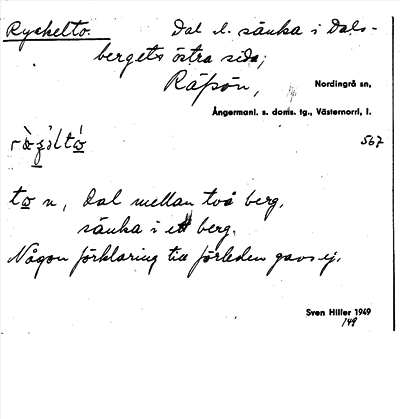 Ryckelto. Dal el. sänka i Dals-
bergets östra sida;
Räfsön, Nordingrå sn,
Ångermanl. s. doms. tg., Västernorrl. l.
567
to n, Dal mellan två berg,
sänka i ett berg.
Någon förklaring till förleden gavs ej.
Sven Hiller 1949
149